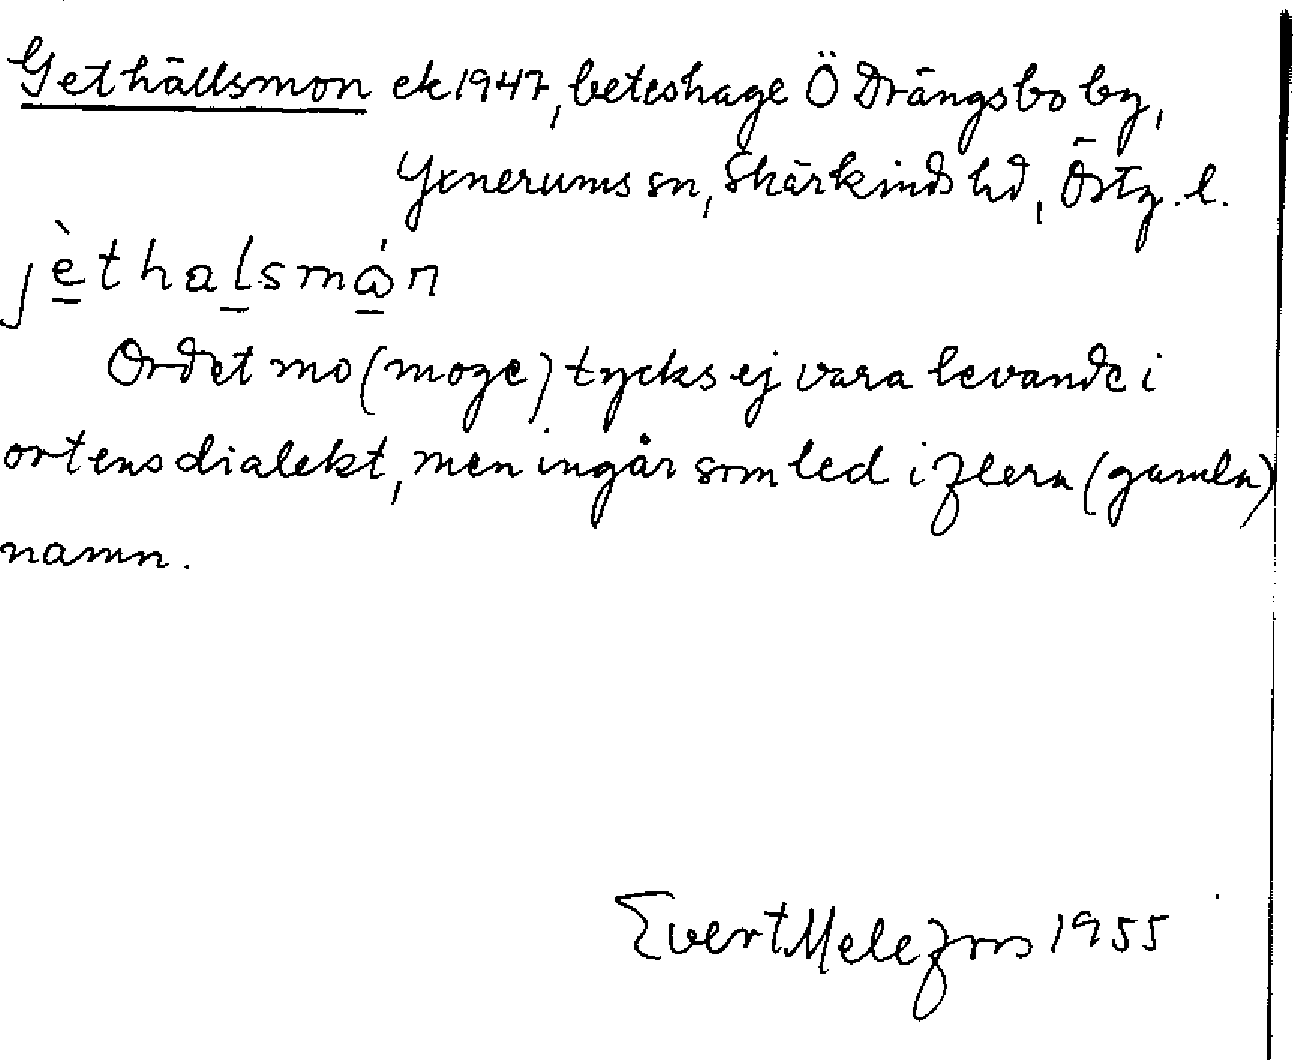 Gethällsmon ek 1947, beteshage Ö Drängsbo by,
Yxnerums sn, Skärkinds hd, Östg. l.
jèthalsmǻn
Ordet mo (moge) tycks ej vara levande i
ortens dialekt, men ingår som led i flera (gamla)
namn.
Evert Melefors 1955